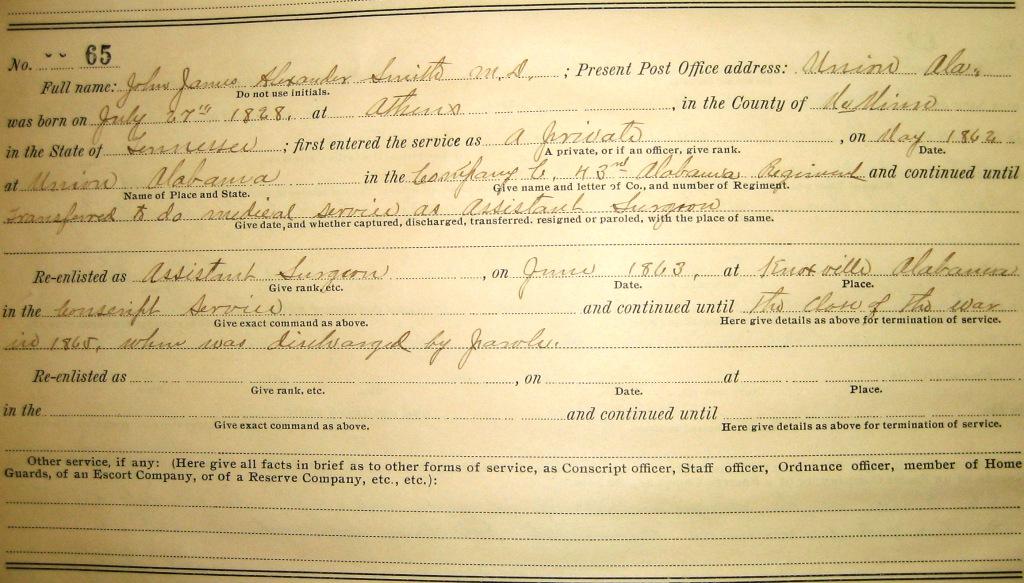 No. -- 65
Full name: John James Alexander Smith M.D. ; Present Post Office address: Union Ala.
Do not use initials.
was born on July 27th 1828, at Athens , in the County of McMinn
in the State of Tennessee ; first entered the service as A private , on May 1862
A private, or if an officer, give rank. Date.
at Union Alabama in the Company C, 43rd Alabama Regiment and continued until
Name of Place and State. Give name and letter of Co., and number of Regiment.
transferred to do medical service as Assistant Surgeon
Give date, and whether captured, discharged, transferred. resigned or paroled, with the place of same.
Re-enlisted as Assistant Surgeon , on June 1863, at Knoxville Alabama
Give rank, etc. Date. Place.
in the Conscript Service and continued until the close of the war
Give exact command as above. Here give details as above for termination of service.
in 1865, when was discharged by parole.
Re-enlisted as , on at
Give rank, etc. Date. Place.
in the and continued until
Give exact command as above. Here give details as above for termination of service.
Other service, if any: (Here give all facts in brief as to other forms of service, as Conscript officer, Staff officer, Ordnance officer, member of Home
Guards, of an Escort Company, or of a Reserve Company, etc., etc.):